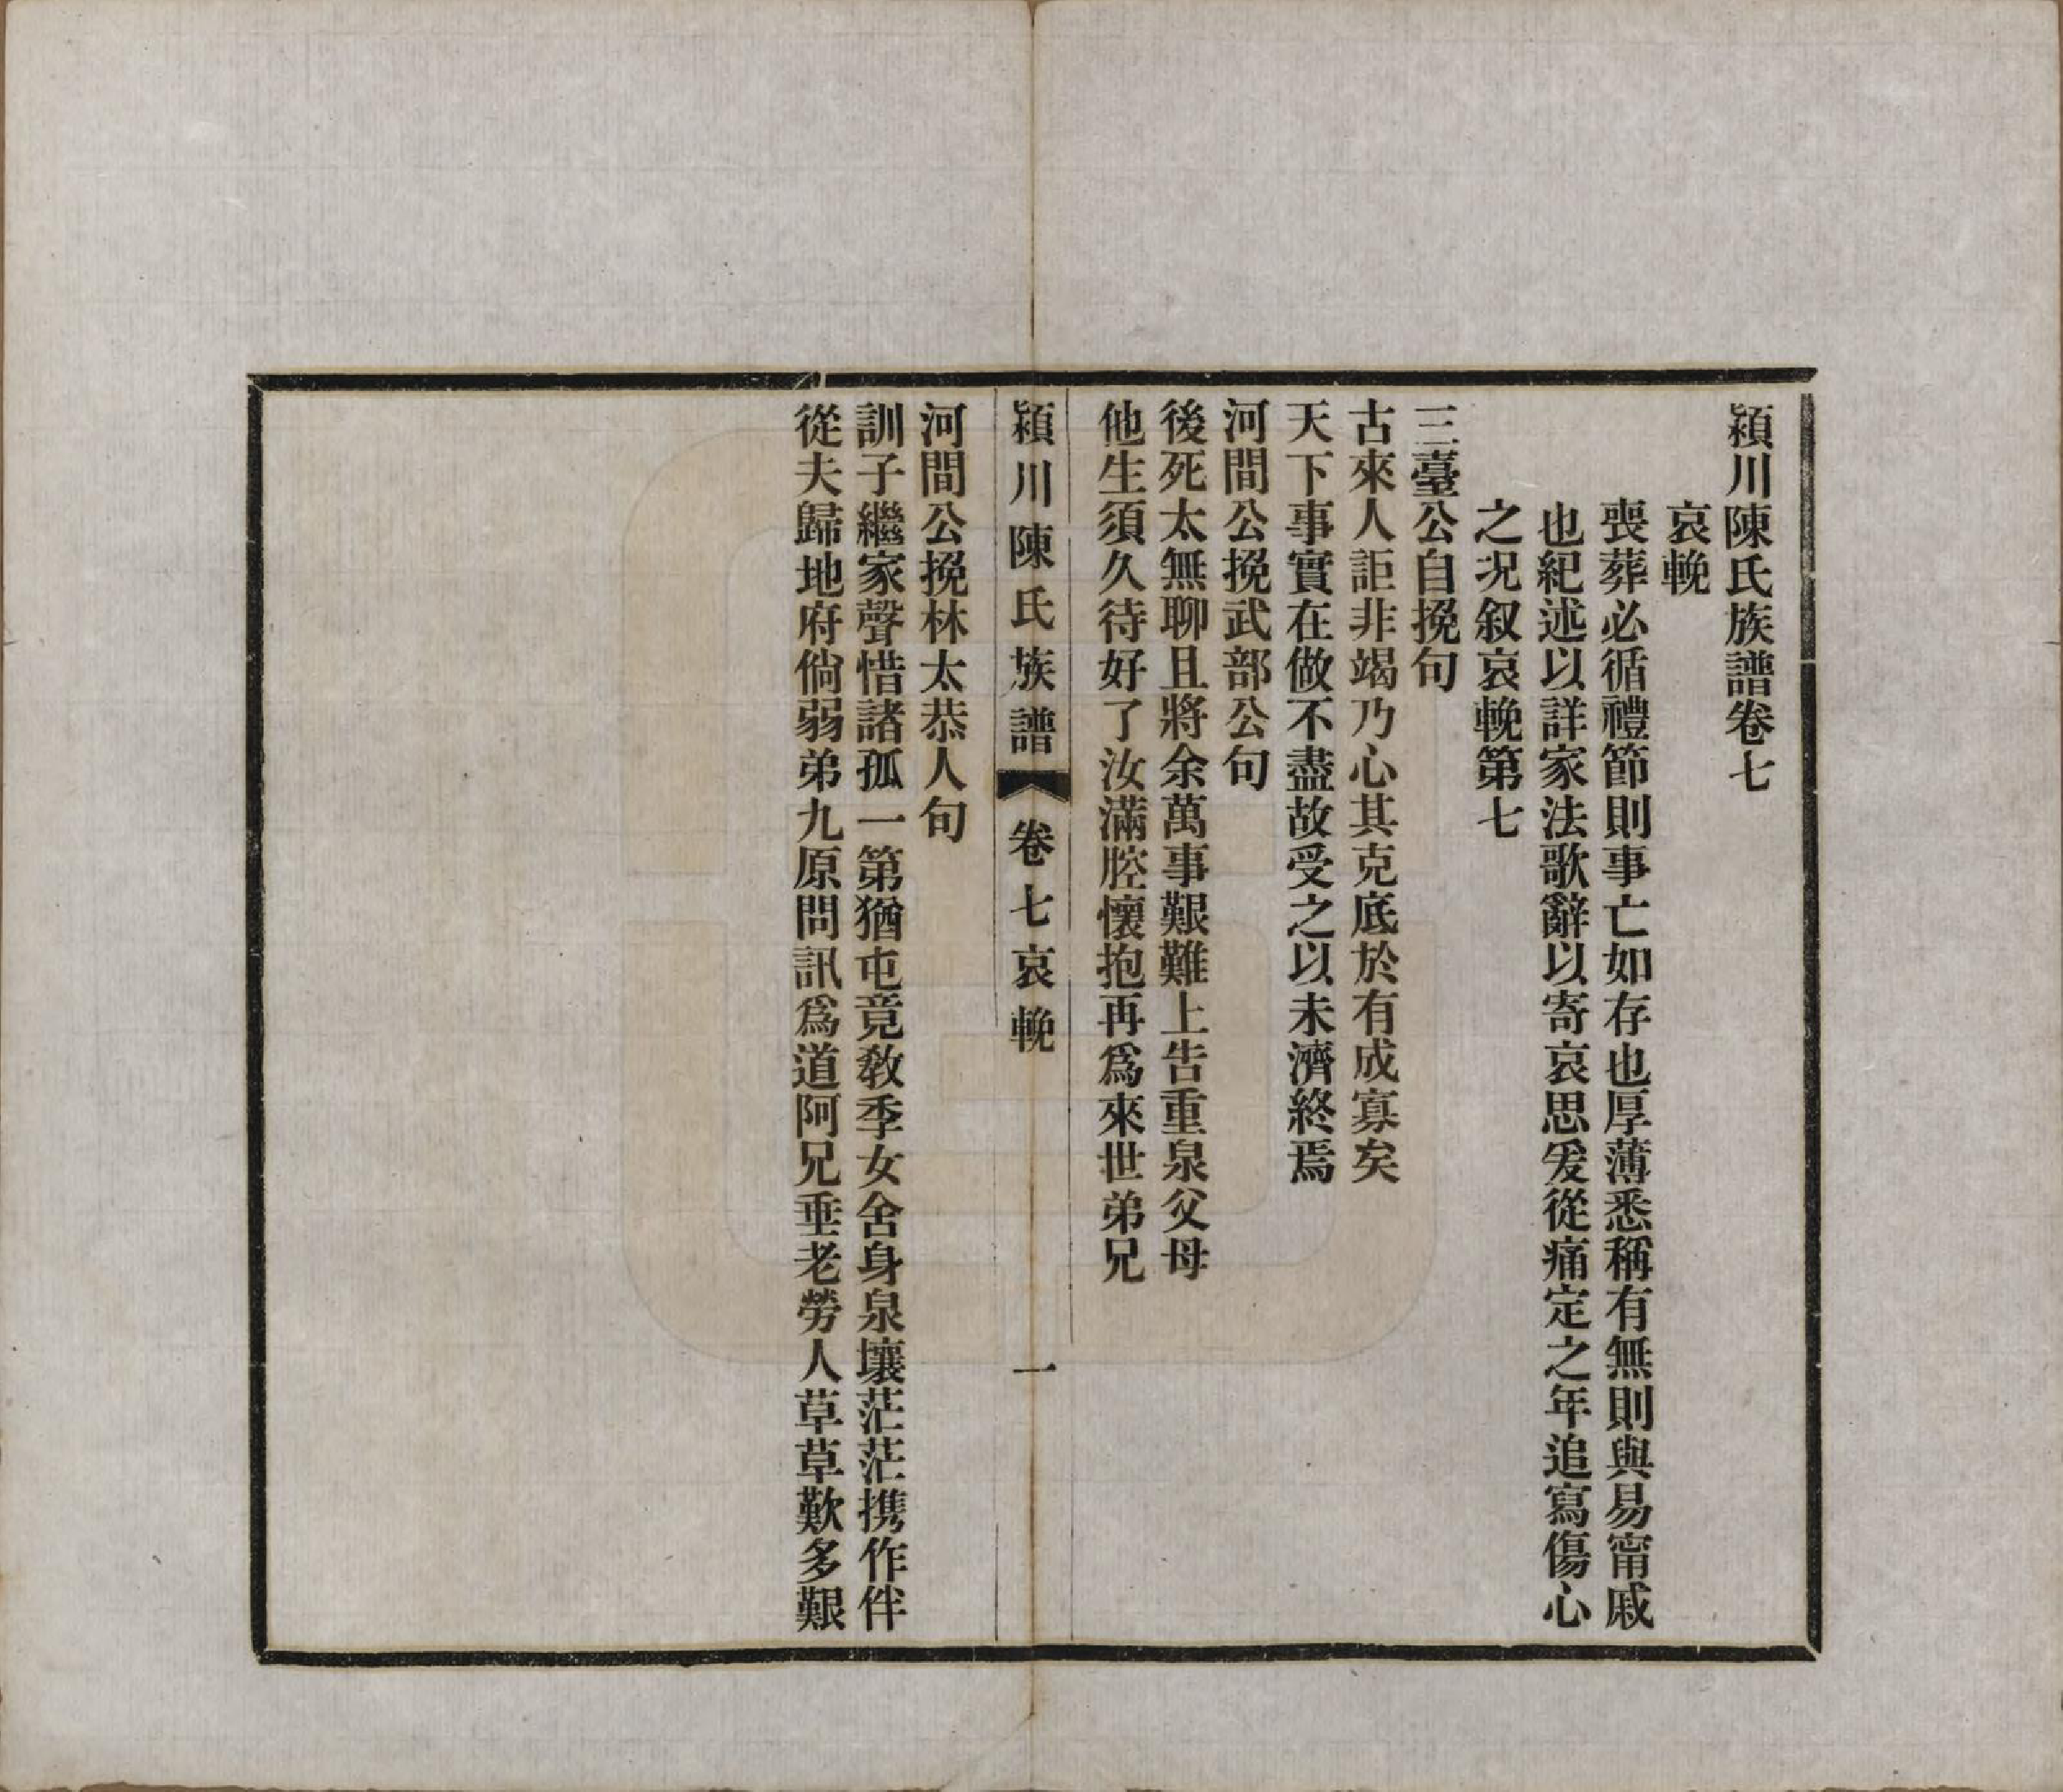 潁川陳氏族譜卷七
哀輓
喪葬必循禮節則事亡如存也厚薄悉稱有無則與易甯戚
也紀述以詳家法歌辭以寄哀思爰從痛定之年追寫傷心
之況叙哀輓第七
三臺公自挽句
古來人詎非竭乃心其克底於有成寡矣
天下事實在做不盡故受之以未濟終焉
河間公挽武部公句
後死太無聊且將余萬事艱難上告重泉父母
他生須久待好了汝滿腔懷抱再爲來世弟兄
潁川陳氏族譜 卷七哀輓 一
河間公挽林太恭人句
訓子繼家聲惜諸孤一第猶屯竟敎季女舍身泉壤茫茫携作伴
從夫歸地府倘弱弟九原問訊爲道阿兄垂老勞人草草歎多艱